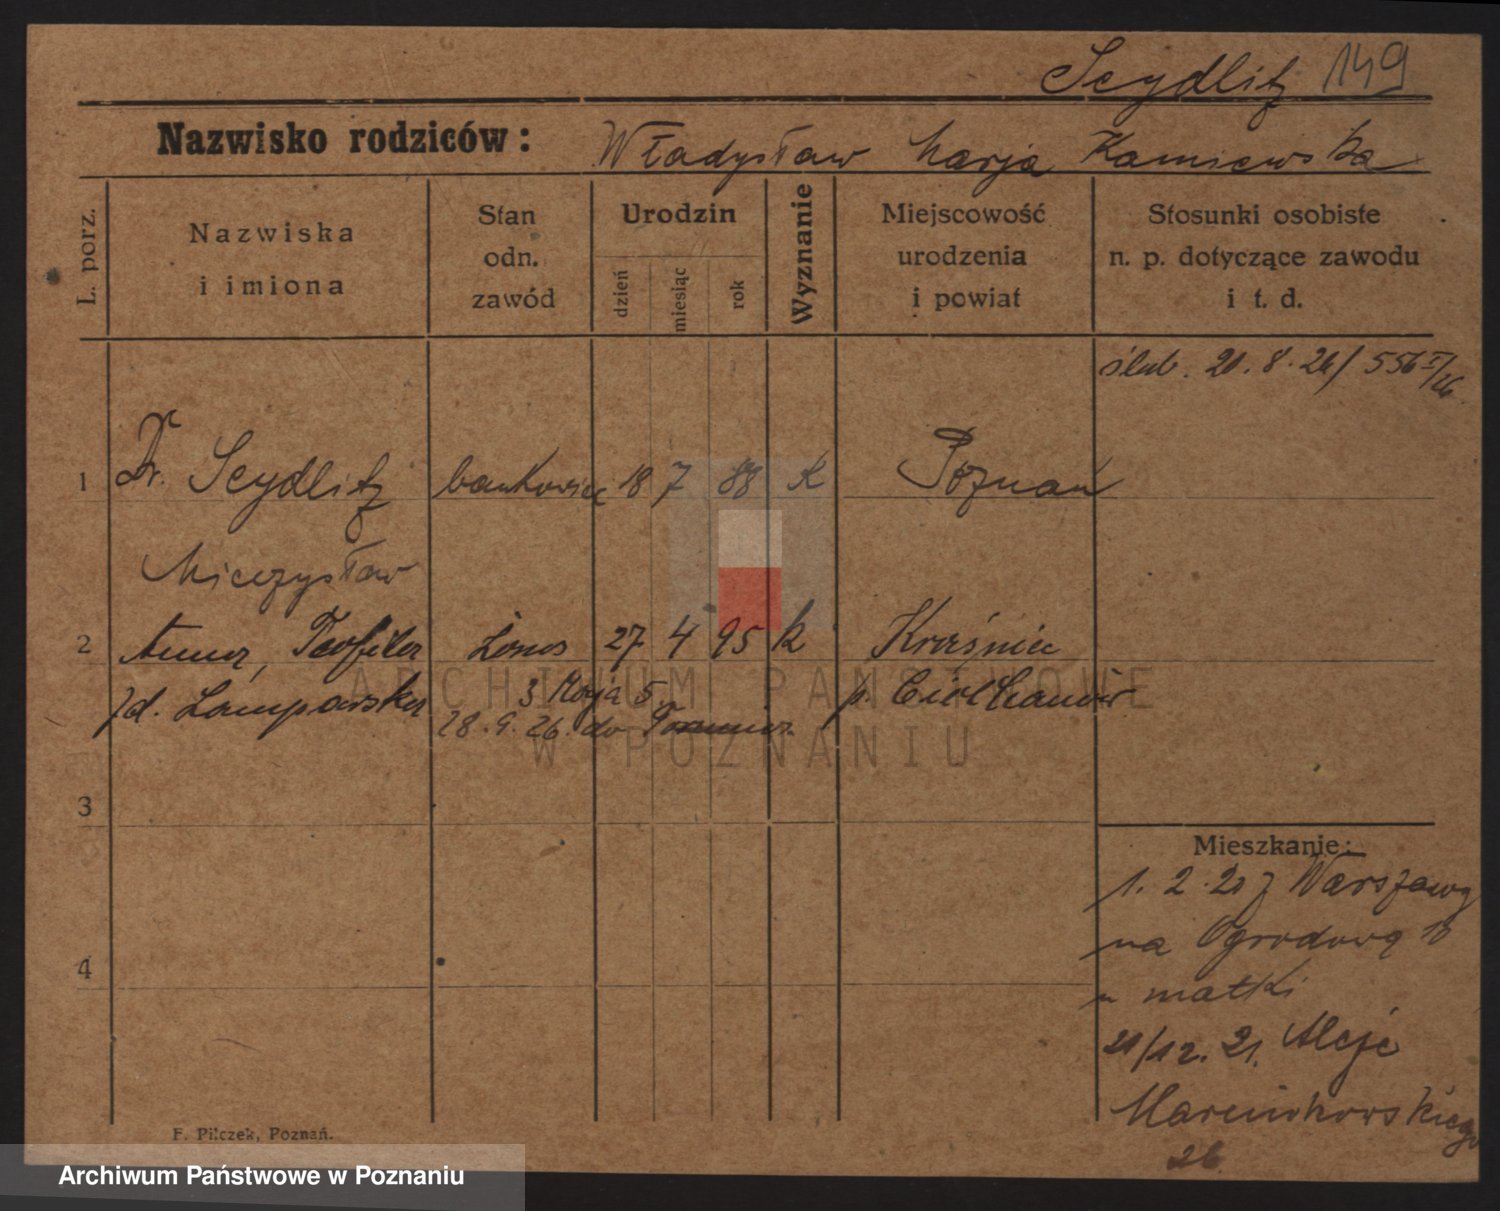 Seydlitz 149
Nazwisko rodziców: Władysław Marja Kamiewska
L. porz.
Nazwiska
i imiona
Stan
odn.
zawód
Urodzin
dzień
miesiąc
rok
Wyznanie
Miejscowość
urodzenia
i powiat
Stosunki osobiste
n. p. dotyczące zawodu
i t. d.
ślub. 20. 8. 26/ 556 I/26.
1 Dr. Seydlitz bankowiec 18 7 88 k Poznań
Mieczysław
2 Anna, Teofila żona 27 4 95 k Kraśniec
zd. Lamparska 3 Maja 5 p. Ciechanów
28. 9. 26. do
3
4
Mieszkanie:
1. 2. 20 z Warszawy
na Ogrodową 18
u matki
21/12. 21. Aleje
Marcinkowskiego
26.
F. Pilczek, Poznań.
ARCHIWUM PAŃSTWOWE
W POZNANIU
Archiwum Państwowe w Poznaniu